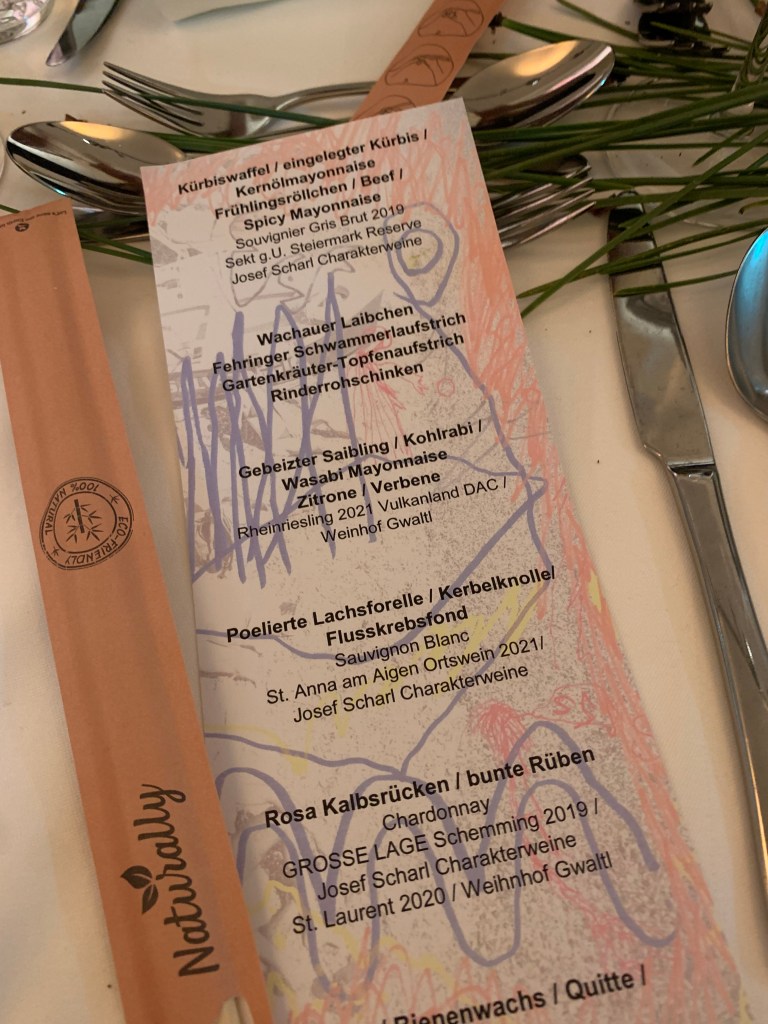 Kürbiswaffel / eingelegter Kürbis /
Kernölmayonnaise
Frühlingsröllchen / Beef /
Spicy Mayonnaise
Souvignier Gris Brut 2019
Sekt g.U. Steiermark Reserve
Josef Scharl Charakterweine
Wachauer Laibchen
Fehringer Schwammerlaufstrich
Gartenkräuter-Topfenaufstrich
Rinderrohschinken
Gebeizter Saibling / Kohlrabi /
Wasabi Mayonnaise
Zitrone / Verbene
Rheinriesling 2021 Vulkanland DAC /
Weinhof Gwaltl
Poelierte Lachsforelle / Kerbelknolle/
Flusskrebsfond
Sauvignon Blanc
St. Anna am Aigen Ortswein 2021/
Josef Scharl Charakterweine
Rosa Kalbsrücken / bunte Rüben
Chardonnay
GROSSE LAGE Schemming 2019 /
Josef Scharl Charakterweine
St. Laurent 2020 / Weihnhof Gwaltl
/ Bienenwachs / Quitte /
100% NATURAL
ECO-FRIENDLY
Naturally